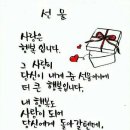 선물
사랑은
행복입니다.
그 사랑이
당신이 내게 준 선물이기에
더 큰 행복입니다.
내 행복도
사랑이 되어
당신에게 돌아갈텐데,